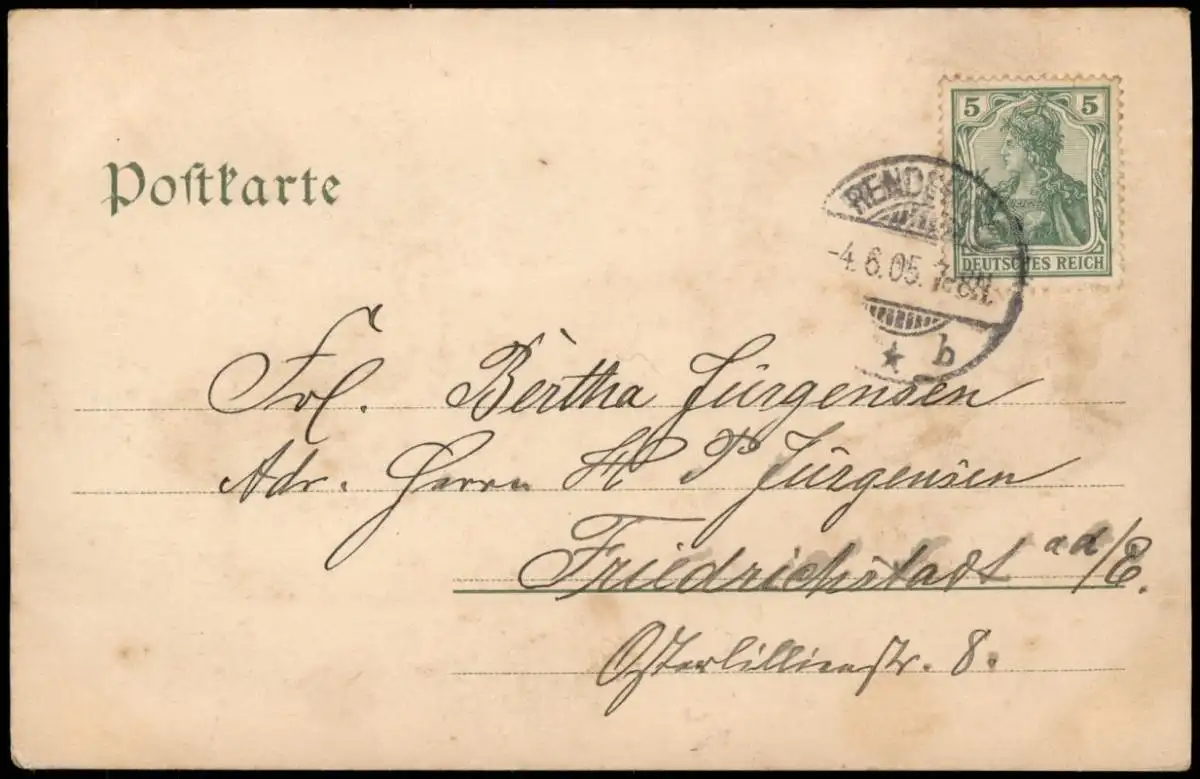 Postkarte
5 5
DEUTSCHES REICH
-4.6.05. 7-8N.
* b
Frl. Bertha Jürgensen
Adr. Herrn H P Jürgensen
Friedrichstadt a d/E.
Osterlillienstr. 8.